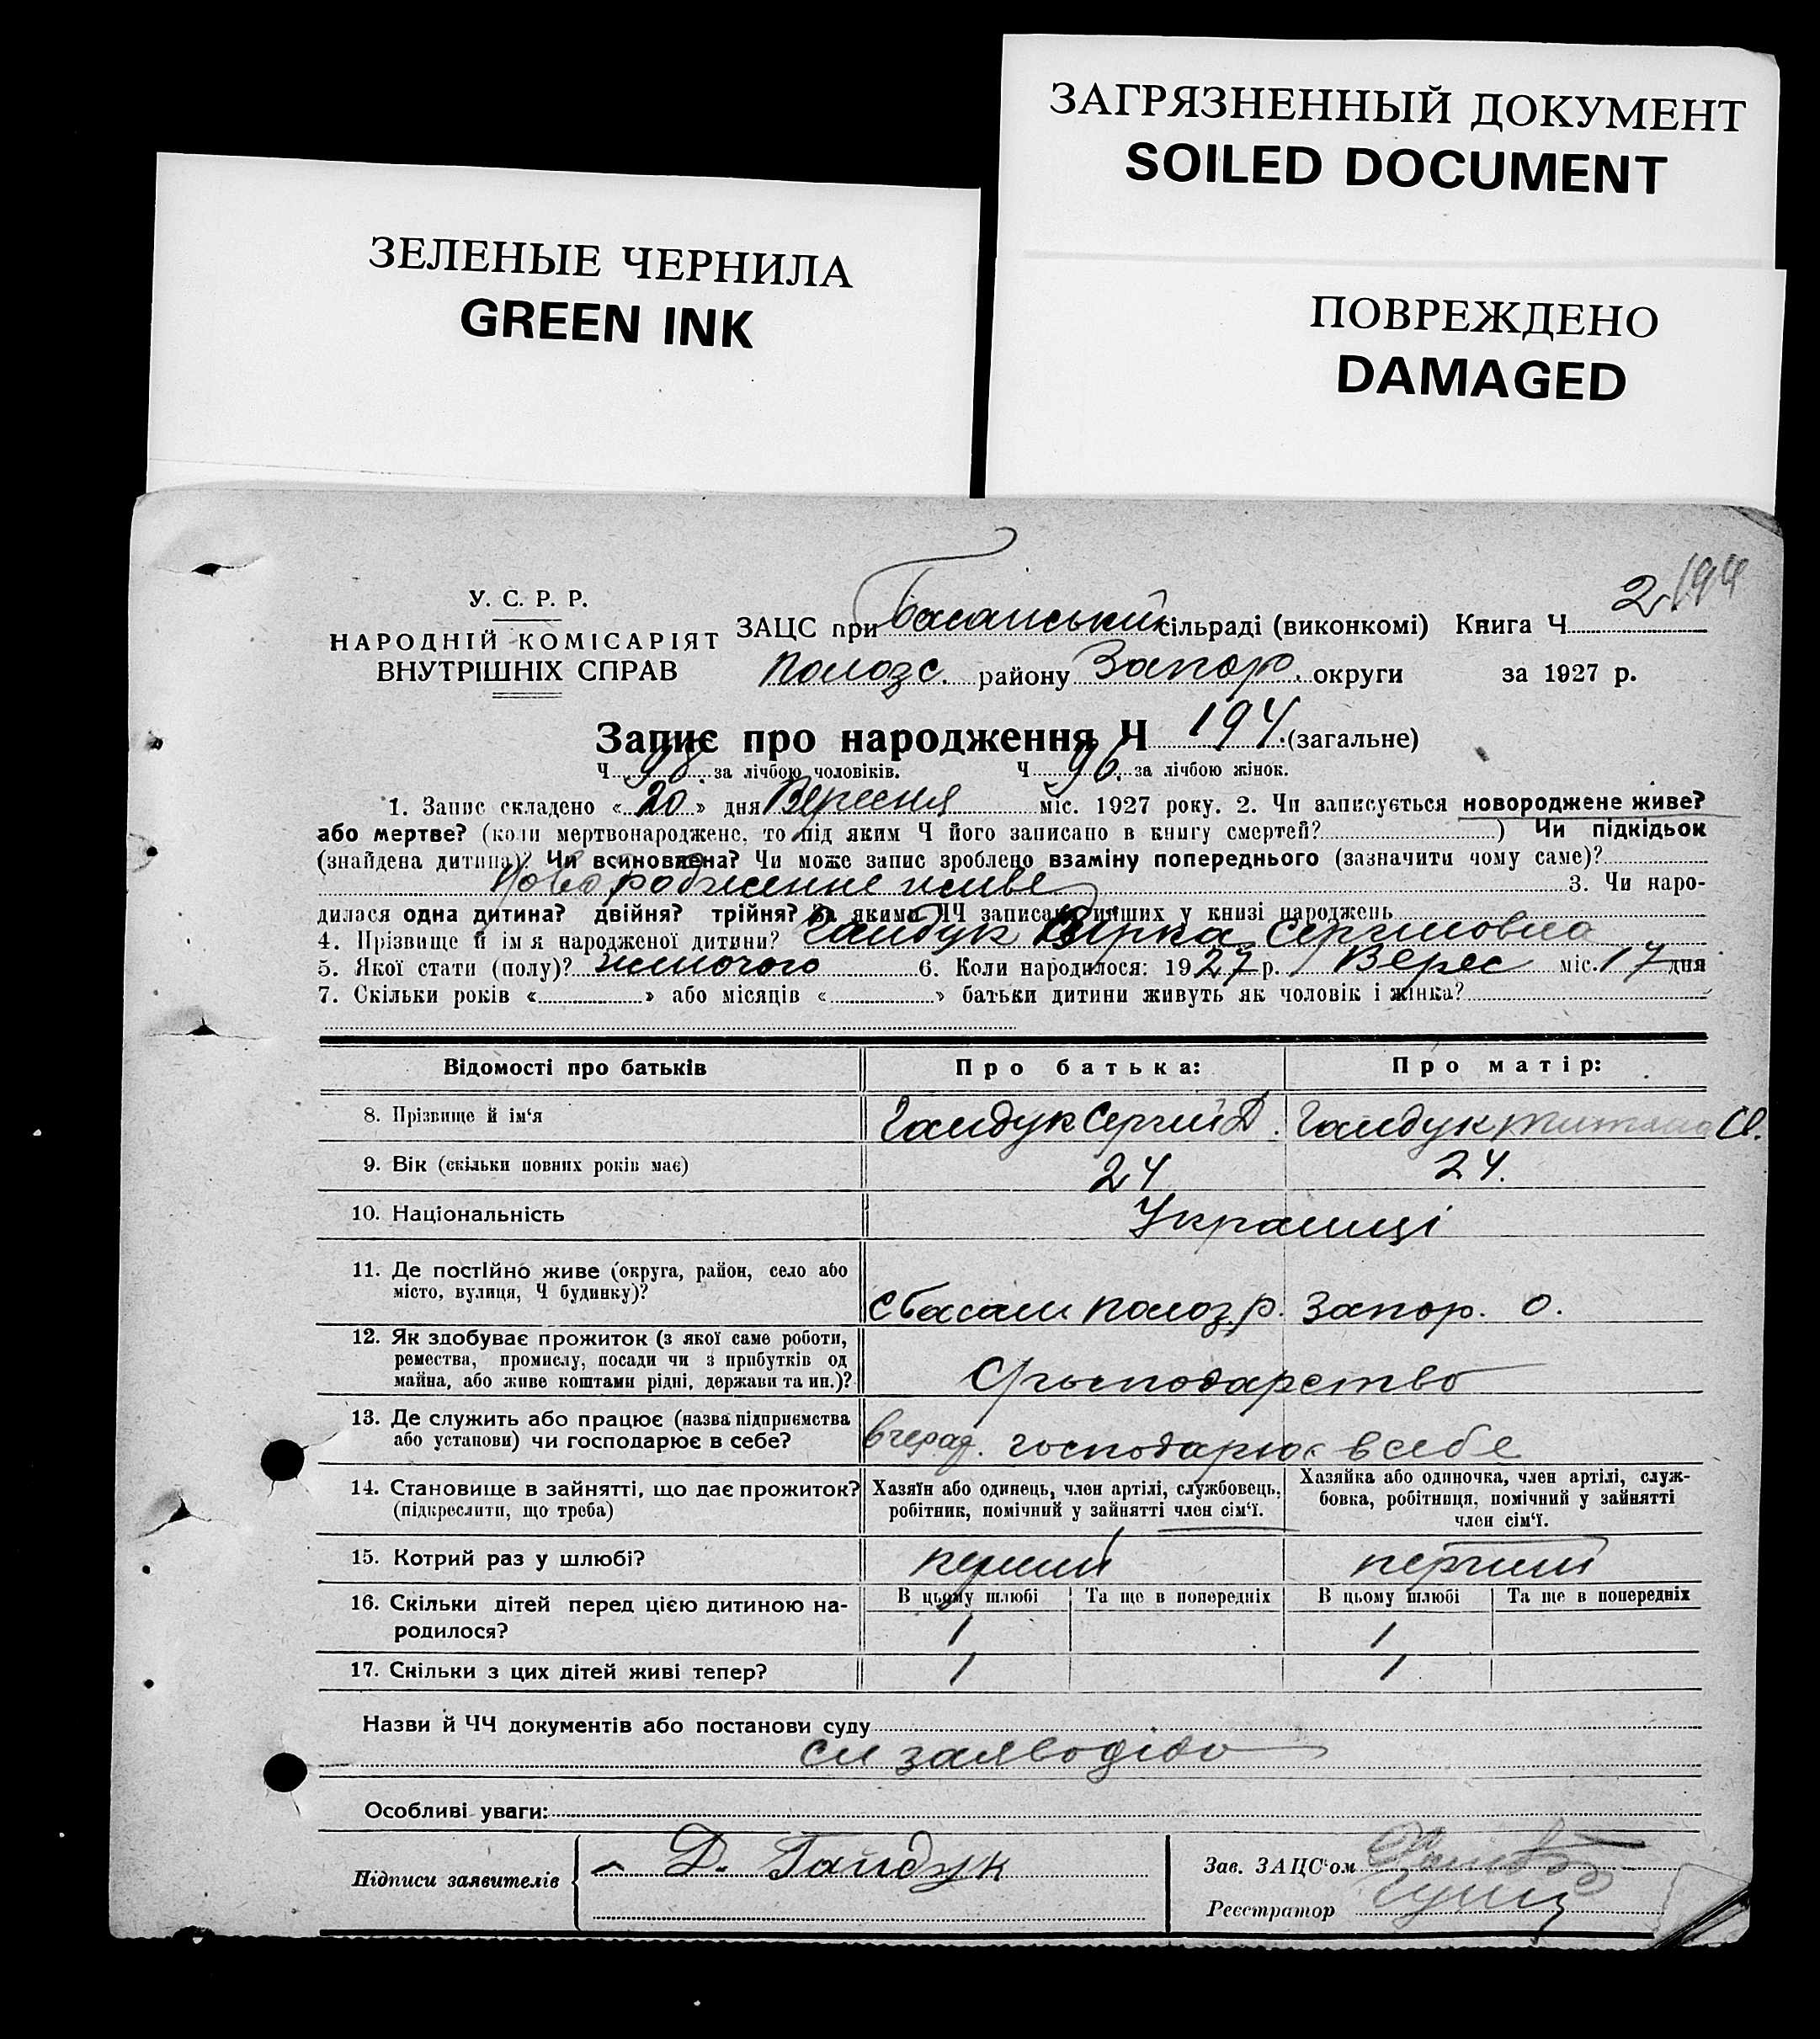 ЗАГРЯЗНЕННЫЙ ДОКУМЕНТ
SOILED DOCUMENT
ЗЕЛЕНЫЕ ЧЕРНИЛА
GREEN INK
ПОВРЕЖДЕНО
DAMAGED
194
У. С. Р. Р.
НАРОДНІЙ КОМІСАРІЯТ
ВНУТРІШНІХ СПРАВ
ЗАЦС при Басанський сільраді (виконкомі) Книга Ч 2
Полозс. району Запор. округи за 1927 р.
Запис про народження Ч 194 (загальне)
Ч 98 за лічбою чоловіків. Ч 96 за лічбою жінок.
1. Запис складено «20» дня Вересня міс. 1927 року. 2. Чи записується новороджене живе?
або мертве? (коли мертвонароджене, то під яким Ч його записано в книгу смертей? ) Чи підкідьок
(знайдена дитина)? Чи всиновлена? Чи може запис зроблено взаміну попереднього (зазначити чому саме)?
Новородженне живе 3. Чи наро-
дилася одна дитина? двійня? трійня? За якими ЧЧ записано инших у книзі народжень
4. Прізвище й ім'я народженої дитини? Гайдук Вірка Сергійовна
5. Якої стати (полу)? жиночого 6. Коли народилося: 1927 р. Верес міс. 17 дня
7. Скільки років « » або місяців « » батьки дитини живуть як чоловік і жінка?
Відомості про батьків Про батька: Про матір:
8. Прізвище й ім'я Гайдук Сергий Д. Гайдук
9. Вік (скільки повних років має) 24 24.
10. Національність Украинці
11. Де постійно живе (округа, район, село або
місто, вулиця, Ч будинку)? с Басань Полоз р. Запор. о.
12. Як здобуває прожиток (з якої саме роботи,
ремества, промислу, посади чи з прибутків од
майна, або живе коштами рідні, держави та ин.)? господарство
13. Де служить або працює (назва підприємства
або установи) чи господарює в себе? господарює в себе
14. Становище в зайнятті, що дає прожиток?
(підкреслити, що треба)
Хазяїн або одинець, член артілі, службовець,
робітник, помічний у зайнятті член сім'ї.
Хазяйка або одиночка, член артілі, служ-
бовка, робітниця, помічний у зайнятті
член сім'ї.
15. Котрий раз у шлюбі? перший перший
16. Скільки дітей перед цією дитиною на-
родилося?
В цьому шлюбі Та ще в попередніх В цьому шлюбі Та ще в попередніх
1 1
17. Скільки з цих дітей живі тепер? 1 1
Назви й ЧЧ документів або постанови суду
Особливі уваги:
Підписи заявителів Д. Гайдук
Зав. ЗАЦС'ом
Реєстратор